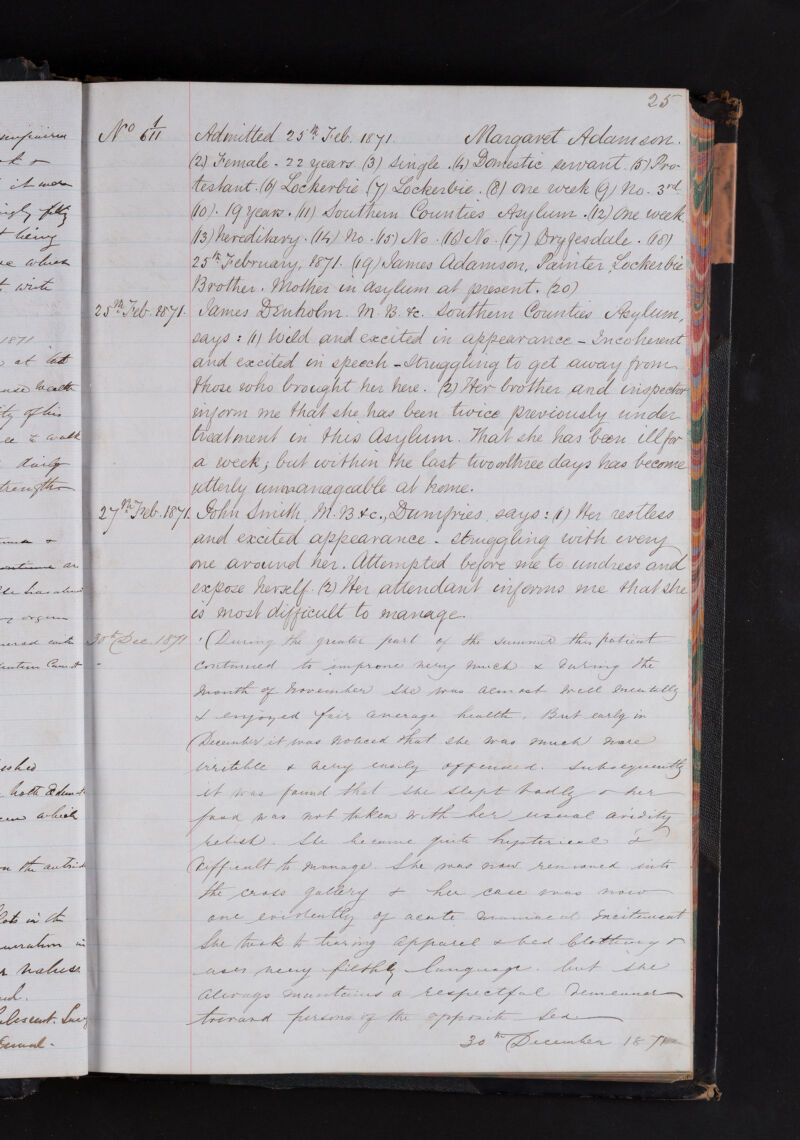 25
No 1/611 Admitted 25th Feb. 1871. Margaret Adamson.
(2) Female. 22 years. (3) Single. (4) Domestic servant. (5) Pro-
testant. (6) Lockerbie (7) Lockerbie. (8) One week (9) No. 3rd
(10). 19 years. (11) Southern Counties Asylum. (12) One week
(13) Hereditary. (14) No. (15) No. (16) No. (17) Dryfesdale. (18)
25th February, 1871. (19) James Adamson, Painter, Lockerbie
Brother. Mother in asylum at present. (20)
25th Feb. 1871. James Denholm. M.B. &c. Southern Counties Asylum,
says: (1) Wild and excited in appearance – Incoherent
and excited in speech – Struggling to get away from
those who brought her here. (2) Her brother and inspector
inform me that she has been twice previously under
treatment in this Asylum. That she has been ill for
a week; but within the last two or three days has become
utterly unmanageable at home.
27th Feb. 1871. John Smith, M.B &c., Dumfries, says: (1) Her restless
and excited appearance – struggling with every
one around her. Attempted before me to undress and
expose herself. (2) Her attendant informs me that she
is most difficult to manage.
30th Dec. 1871. (During the greater part of the summer this patient
continued to improve very much & during the
month of November she was almost well mentally
& enjoyed fair average health. But early in
December it was noticed that she was much more
irritable & very easily offended. Subsequently
it was found that she slept badly & her
food was not taken with her usual avidity
relish. She became quite hysterical &
difficult to manage. She was now removed into
the cross gallery & her case was now
one evidently of acute maniacal excitement
She took to tearing apparel & bed clothing &
uses very filthy language. but she
always maintains a respectful demeanor
toward persons of the opposite sex
30th December 1871